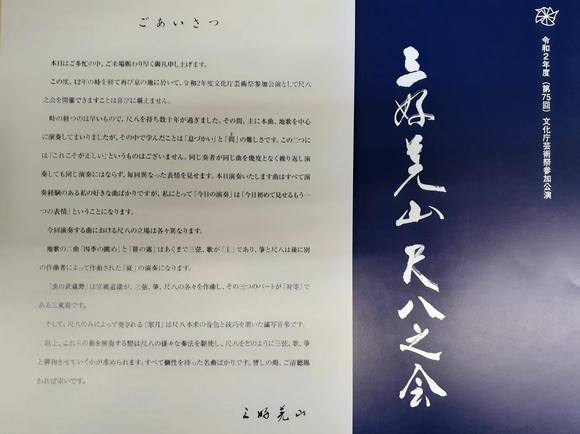 ごあいさつ
本日はご多忙の中、ご来場賜わり厚く御礼申し上げます。
この度、12年の時を経て再び京の地に於いて、令和2年度文化庁芸術祭参加公演として尺八
之会を開催できますことは喜びに堪えません。
時の経つのは早いもので、尺八を持ち数十年が過ぎました。その間、主に本曲、地歌を中心
に演奏してまいりましたが、その中で学んだことは「息づかい」と「間」の難しさです。この二つに
は「これこそが正しい」というものはございません。同じ奏者が同じ曲を幾度となく繰り返し演
奏しても同じ演奏にはならず、毎回異なった表情を見せます。本日演奏いたします曲はすべて演
奏経験のある私の好きな曲ばかりですが、私にとって「今日の演奏」は「今日初めて見せるもう一
つの表情」ということになります。
今回演奏する曲における尺八の立場は各々異なります。
地歌の二曲「四季の眺め」と「笹の露」はあくまで三弦、歌が「主」であり、箏と尺八は後に別
の作曲者によって作曲された「従」の演奏になります。
「虫の武蔵野」は宮城道雄が、三弦、箏、尺八の各々を作曲し、その三つのパートが「対等」で
ある三重奏です。
そして、尺八のみによって奏される「寒月」は尺八本来の音色と技巧を用いた描写音楽です。
以上、これらの曲を演奏する際は尺八の様々な奏法を駆使し、尺八をどのように三弦、歌、箏
と調和させていくかが求められます。すべて個性を持った名曲ばかりです。暫しの間、ご清聴賜
われば幸いです。
三好晃山
令和2年度（第75回）文化庁芸術祭参加公演
三好晃山尺八之会